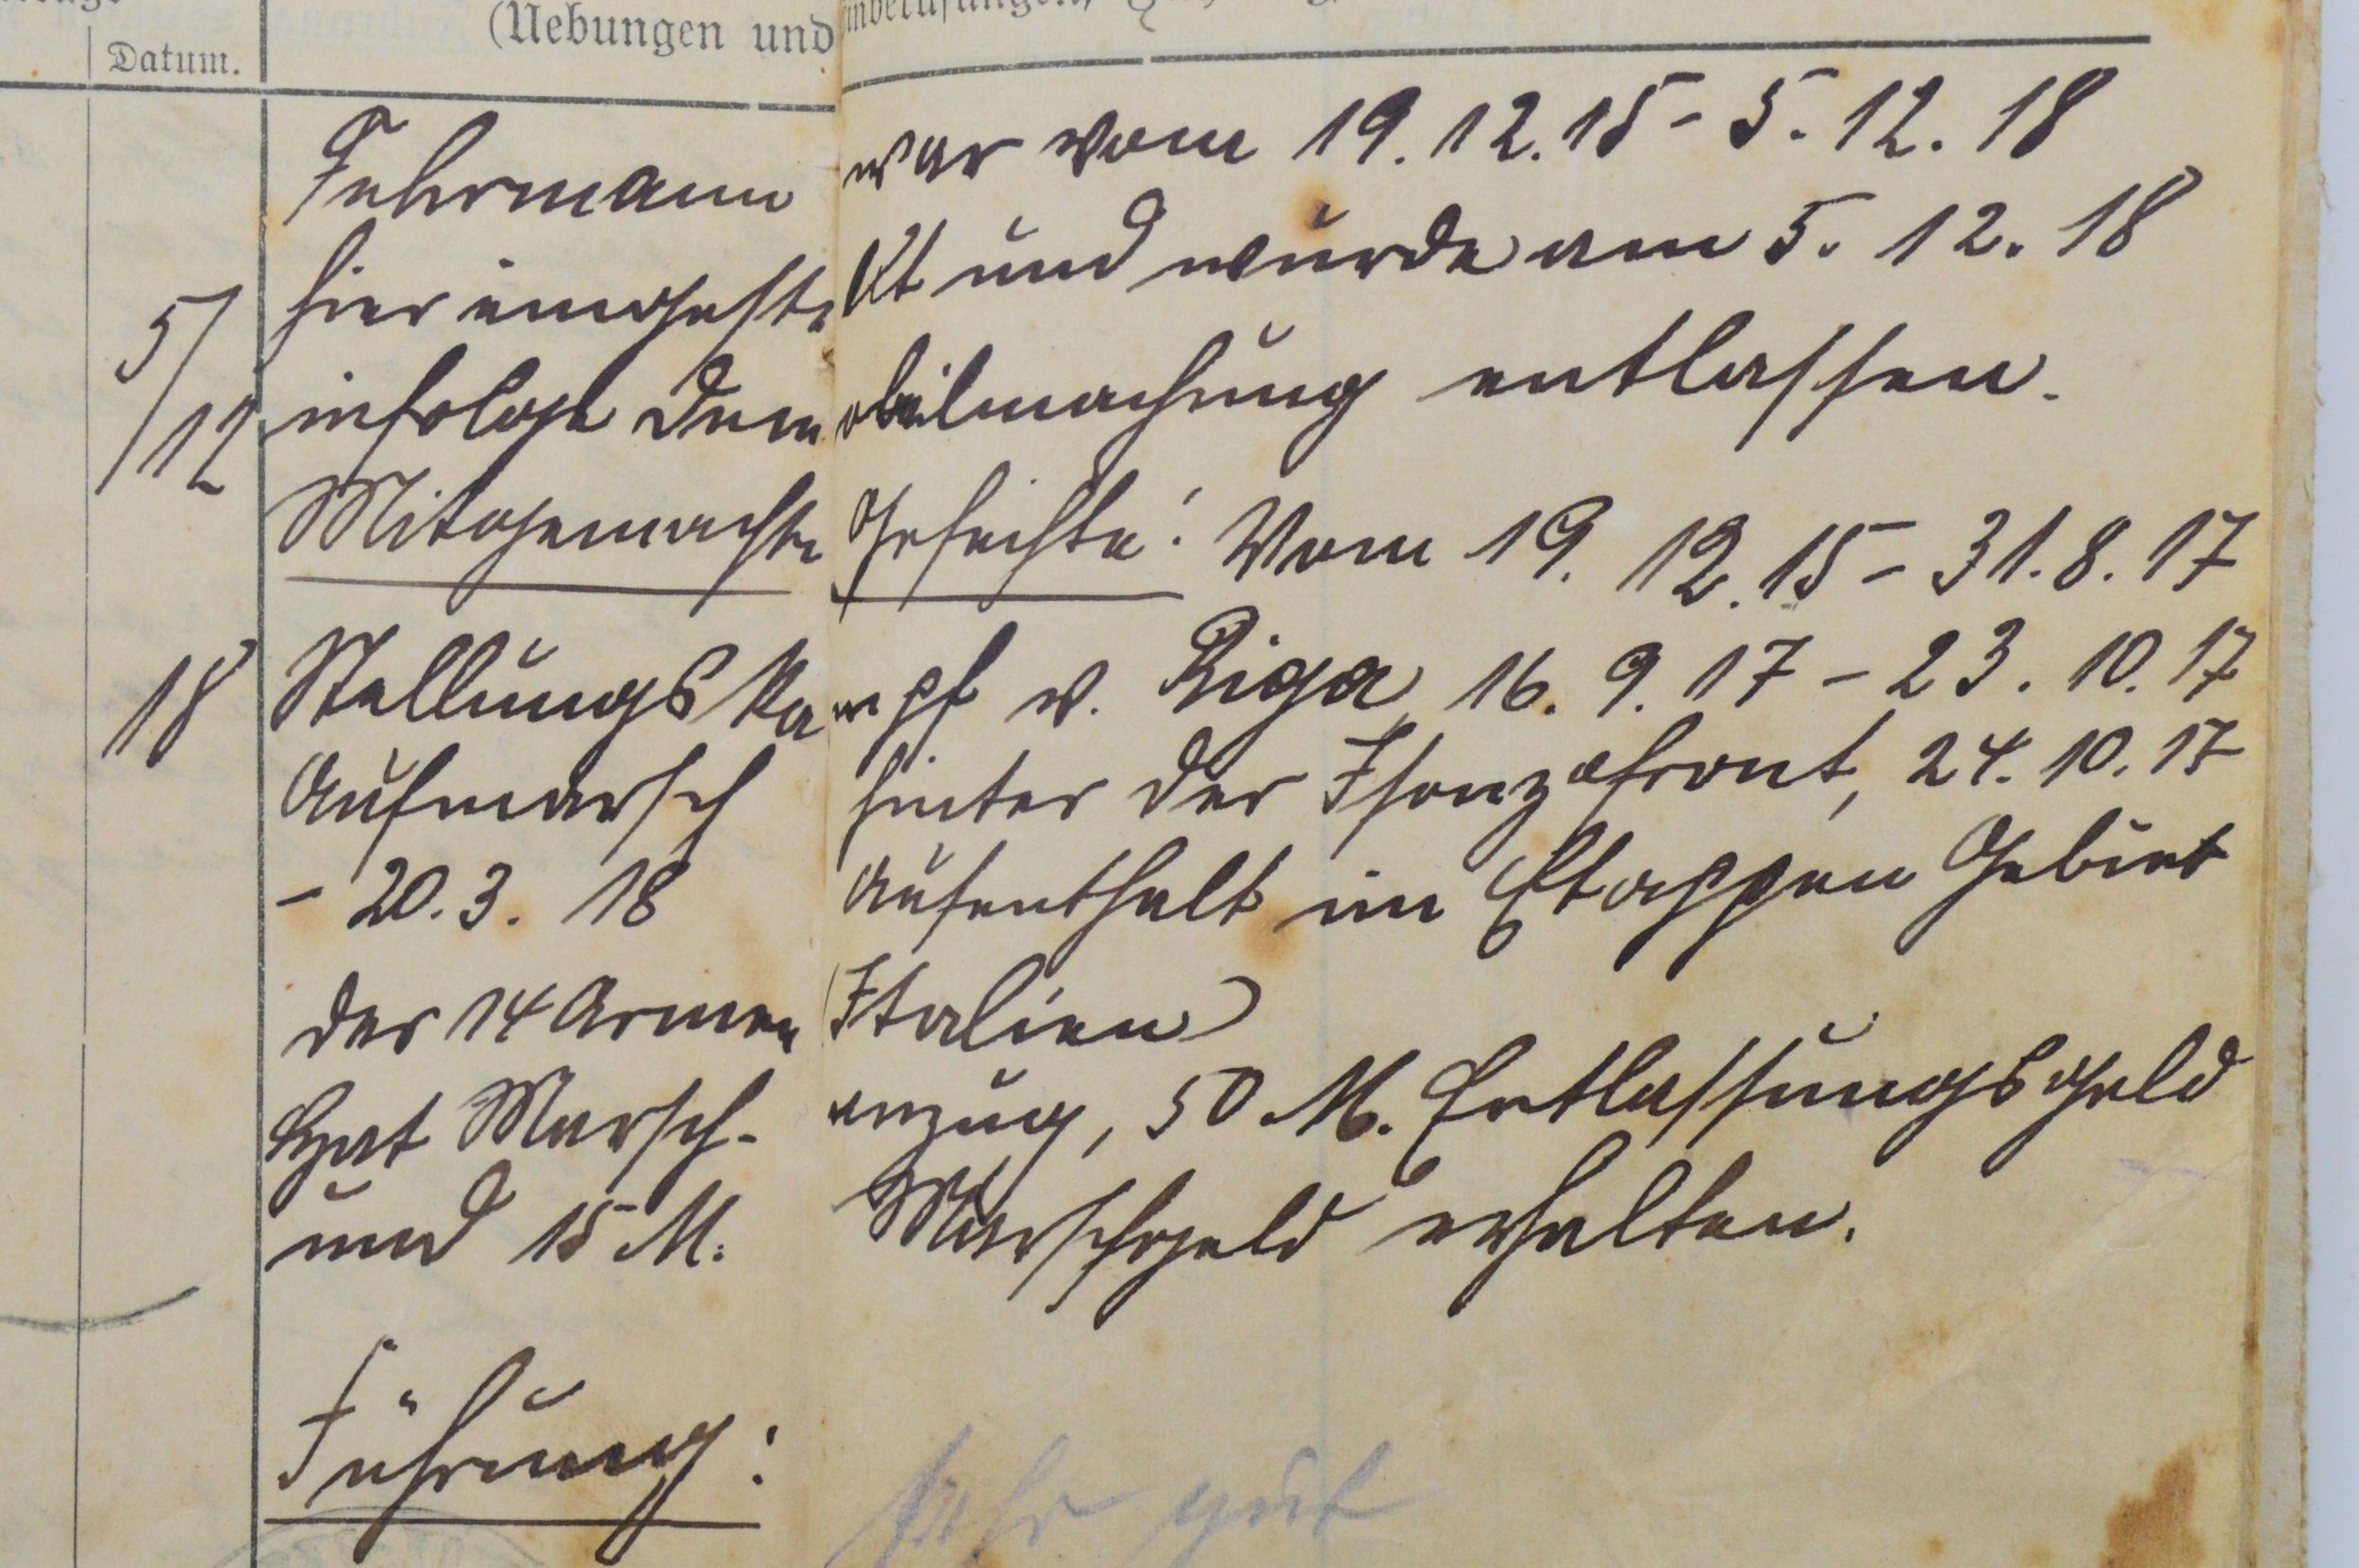 Datum.
(Uebungen und
Fuhrmann war vom 19.12.15 - 5.12.18
hier eingestellt und wurde am 5.12.18
5/12
infolge Demobilmachung entlassen.
Mitgemachte Gefechte: Vom 19.12.15 - 31.8.17
18
Stellungskampf v. Riga, 16.9.17 - 23.10.17
Aufmarsch hinter der Isonzofront, 24.10.17
- 20.3.18 Aufenthalt im Etappen Gebiet
der 14 Armee (Italien)
Hat Marsch-anzug, 50 M. Entlassungsgeld
und 15 M. Marschgeld erhalten.
Führung: sehr gut